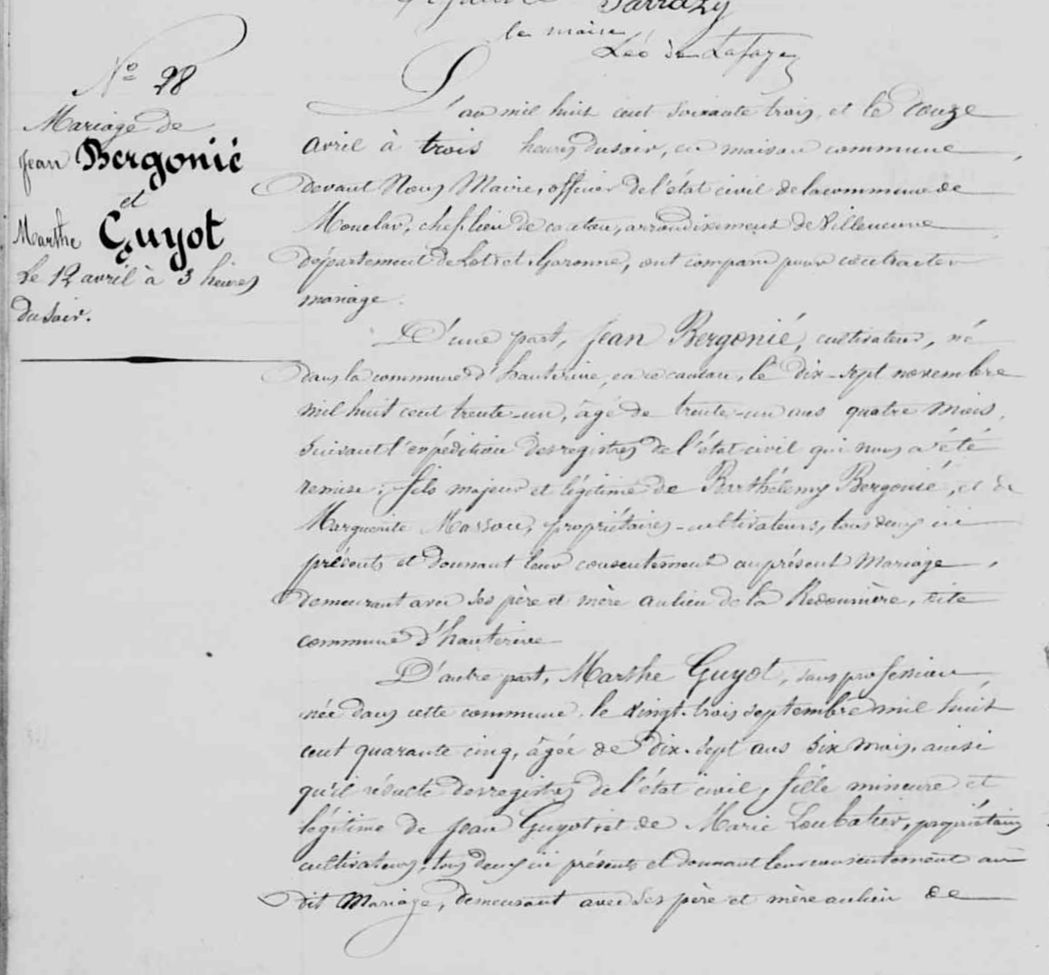 Sarrazy
le maire
Léo de Lafaye
N° 28
Mariage de
Jean Bergonié
et
Marthe Guyot
Le 12 avril à 3 heures
du soir.
L'an mil huit cent soixante trois, et le douze
avril à trois heures du soir, en maison commune
devant Nous Maire, officier de l'état civil de la commune de
Monclar, chef lieu de canton, arrondissement de Villeneuve
département de Lot et Garonne, ont comparu pour contracter
mariage.
D'une part, Jean Bergonié, cultivateur, né
dans la commune d'hauterive, en ce canton, le dix-sept novembre
mil huit cent trente-un, âgé de trente-un ans quatre mois,
suivant l'expédition des registres de l'état civil qui nous a été
remise; fils majeur et légitime de Barthélemy Bergonié, et de
Marguerite Marsou, propriétaires-cultivateurs, tous deux ici
présents et donnant leur consentement au présent Mariage,
demeurant avec ses père et mère au lieu de la, dite
commune d'hauterive
D'autre part, Marthe Guyot, sans profession,
née dans cette commune, le vingt-trois septembre mil huit
cent quarante cinq, âgée de dix-sept ans six mois, ainsi
qu'il résulte des registres de l'état civil, fille mineure et
légitime de Jean Guyot et de Marie Loubatier, propriétaires
cultivateurs, tous deux ici présents et donnant leur consentement au
dit Mariage, demeurant avec ses père et mère au lieu de